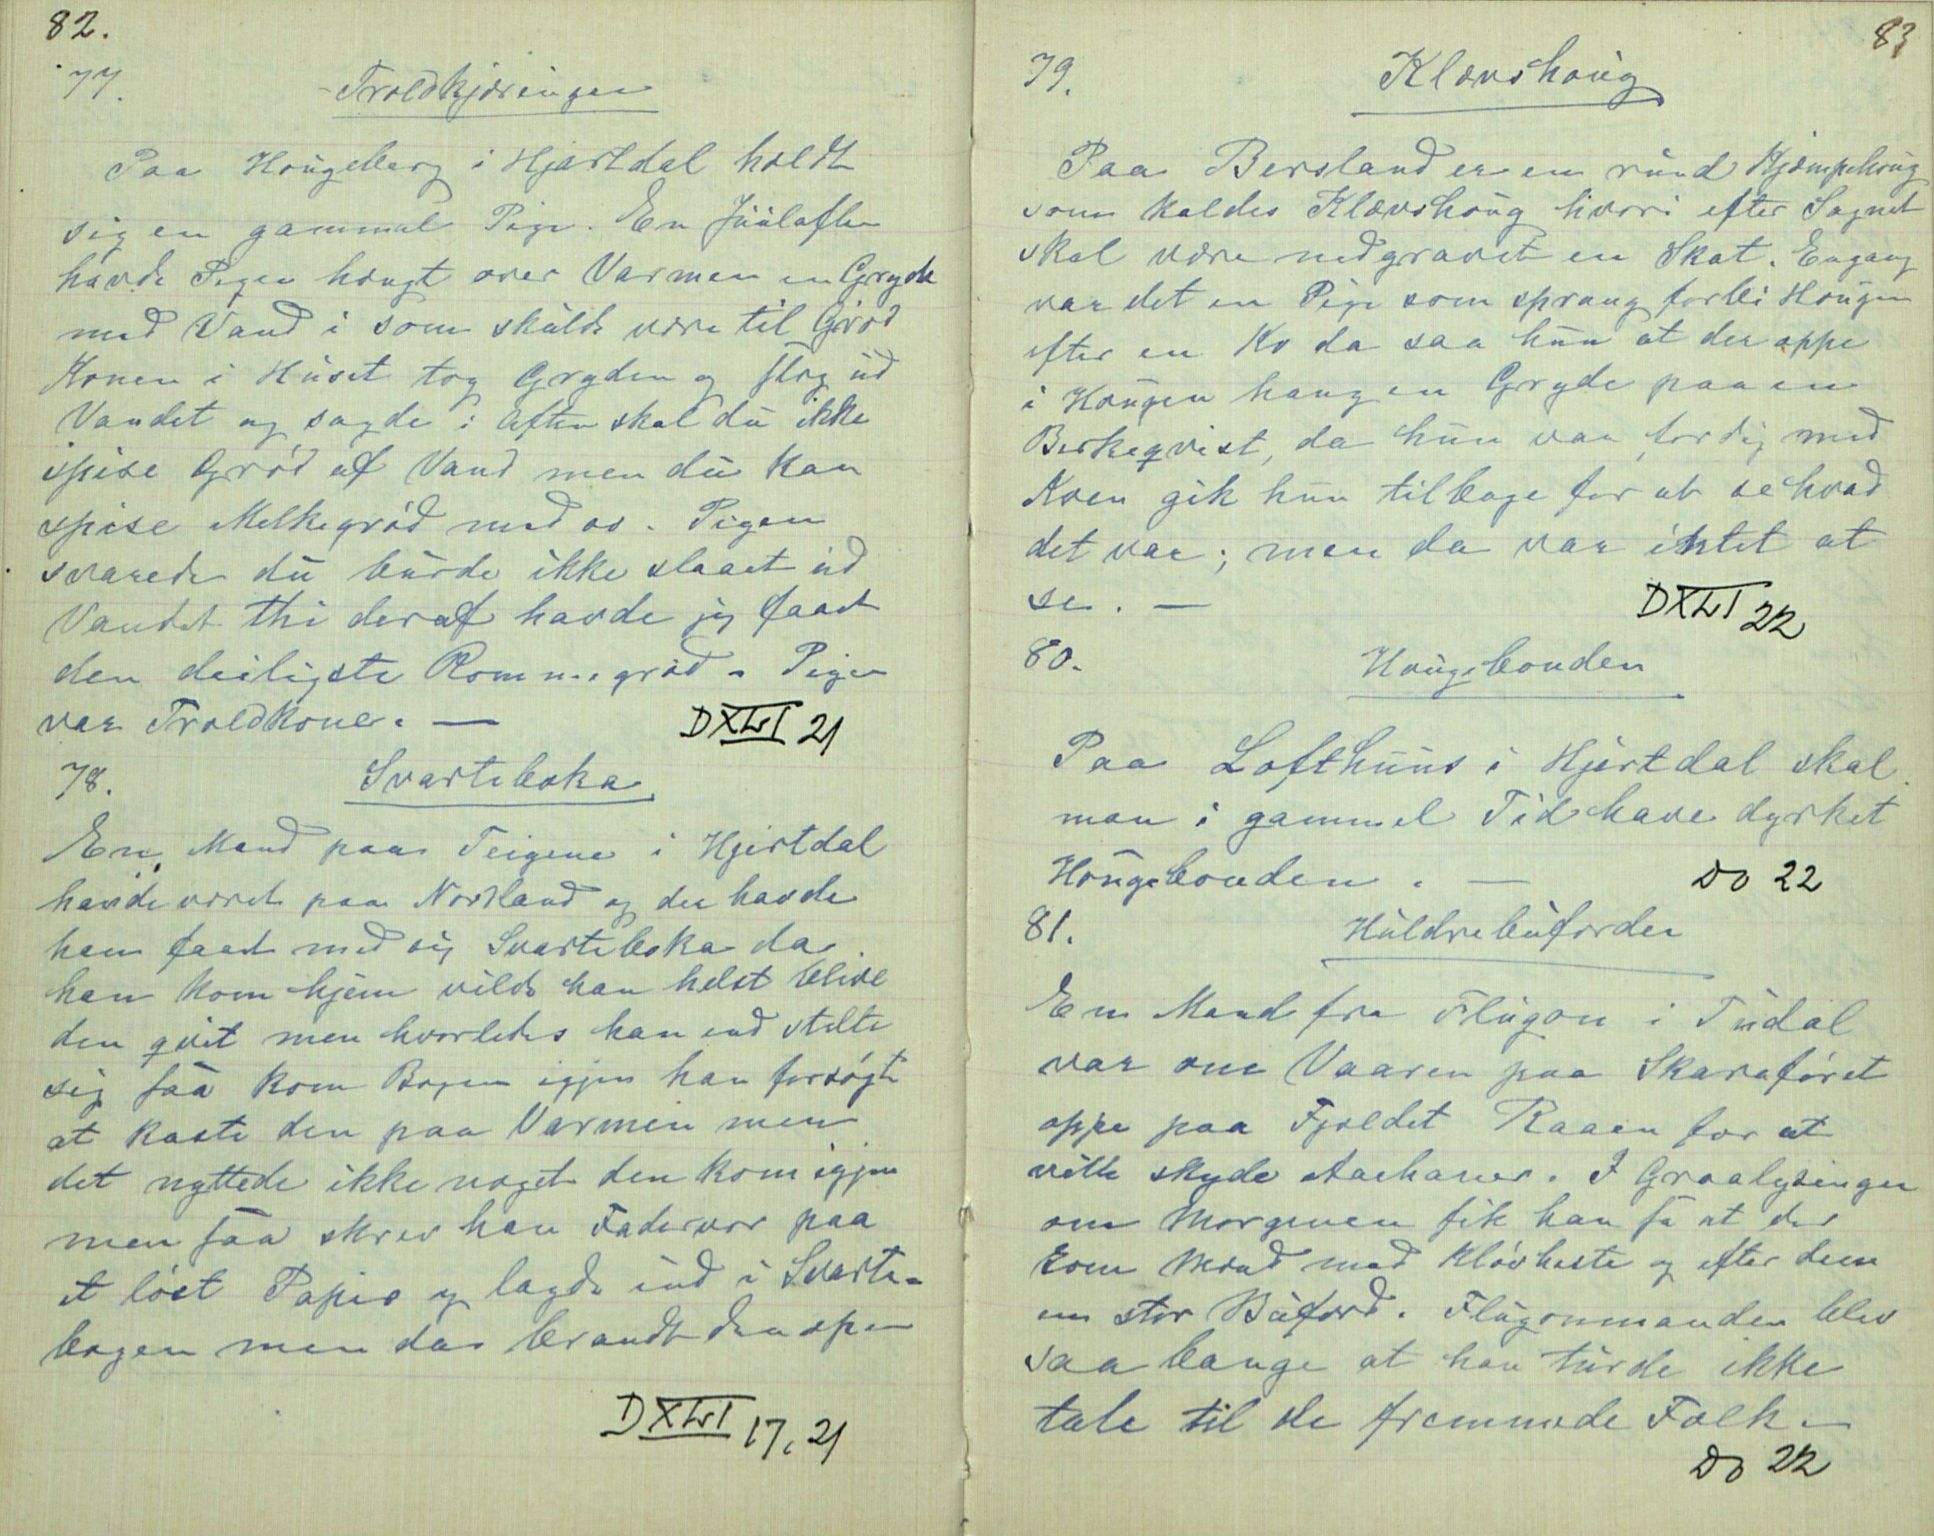 82.
77.
Troldkjæringen
Paa Hougeberg i Hjertdal holdt
sig en gammal Pige. En Juulaften
havde Pigen hængt over Varmen en Gryde
med Vand i som skulde være til Grød
Konen i Huset tog Gryden og slog ud
Vandet og sagde i Aften skal du ikke
spise Grød af Vand men du kan
spise Melkegrød med os. Pigen
svarede du burde ikke slaaet ud
Vandet thi deraf havde jeg faaet
den deiligste Rømmegrød. Pigen
var Troldkone. —
DXLVI 21
78.
Svarteboka
En Mand paa Teigene i Hjertdal
havde været paa Nordland og der havde
han faaet med sig Svarteboka da
han kom hjem vilde han helst blive
den qvit men hvorledes han end stelte
sig saa kom Bogen igjen han forsøgte
at kaste den paa Varmen men
det nyttede ikke noget den kom igjen
men saa skrev han Fadervor paa
et løst Papir og lagde ind i Svarte-
bogen men da brændte den op
DXLVI 17, 21
83
79.
Klævshoug
Paa Bersland er en rund Kjæmpehoug
som kaldes Klævshoug hvori efter Sagnet
skal være nedgravet en Skat. Engang
var det en Pige som sprang forbi Hougen
efter en Ko da saa hun at der oppe
i Hougen hang en Gryde paa en
Berkeqvist, da hun var færdig med
Koen gik hun tilbage for at se hvad
det var; men da var intet at
se. —
DXLVI 22
80.
Hougebonden
Paa Lofthuus i Hjertdal skal
man i gammel Tid have dyrket
Hougebonden. —
Do 22
81.
Huldrebuferden
En Mand fra Flugon i Tudal
var om Vaaren paa Skaraføret
oppe paa Fjeldet Raaen for at
ville skyde Aarhaner. I Graalysingen
om Morgenen fik han se at der
kom Mænd med Kløvheste og efter dem
en stor Buferd. Flugonmanden blev
saa bange at han turde ikke
tale til de fremmede Folk. —
Do 22